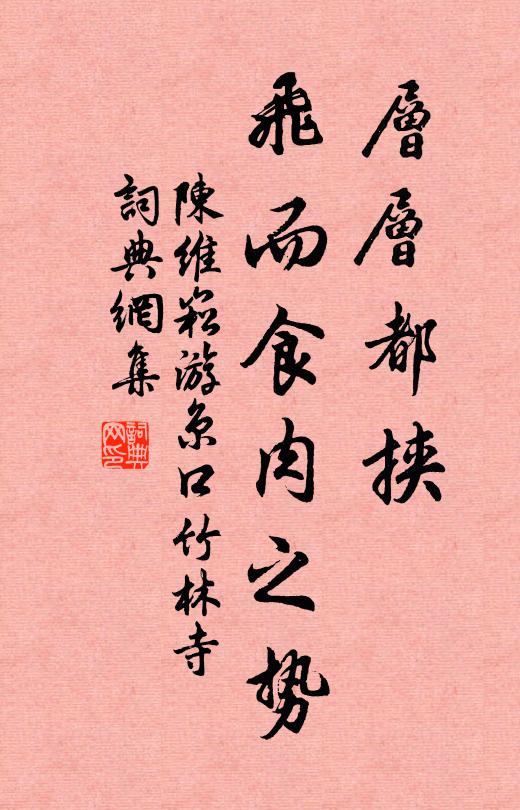 層層都挾
飛而食肉之势
陳維崧游京口竹林寺
詞典網集
詞典网印